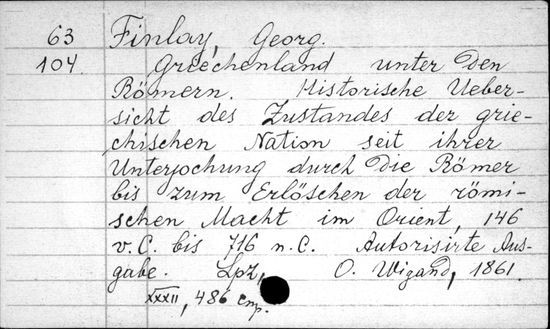 63 Finlay, Georg.
104. Griechenland unter Den
Römern. Historische Ueber-
sicht des Zustandes der grie-
chischen Nation seit ihrer
Unterjochung durch Die Römer
bis zum Erlöschen der römi-
schen Macht im Orient, 146
v. C. bis 716 n. C. Autorisirte Aus-
gabe. Lpz, O. Wigand, 1861.
XXXII, 486 стр.